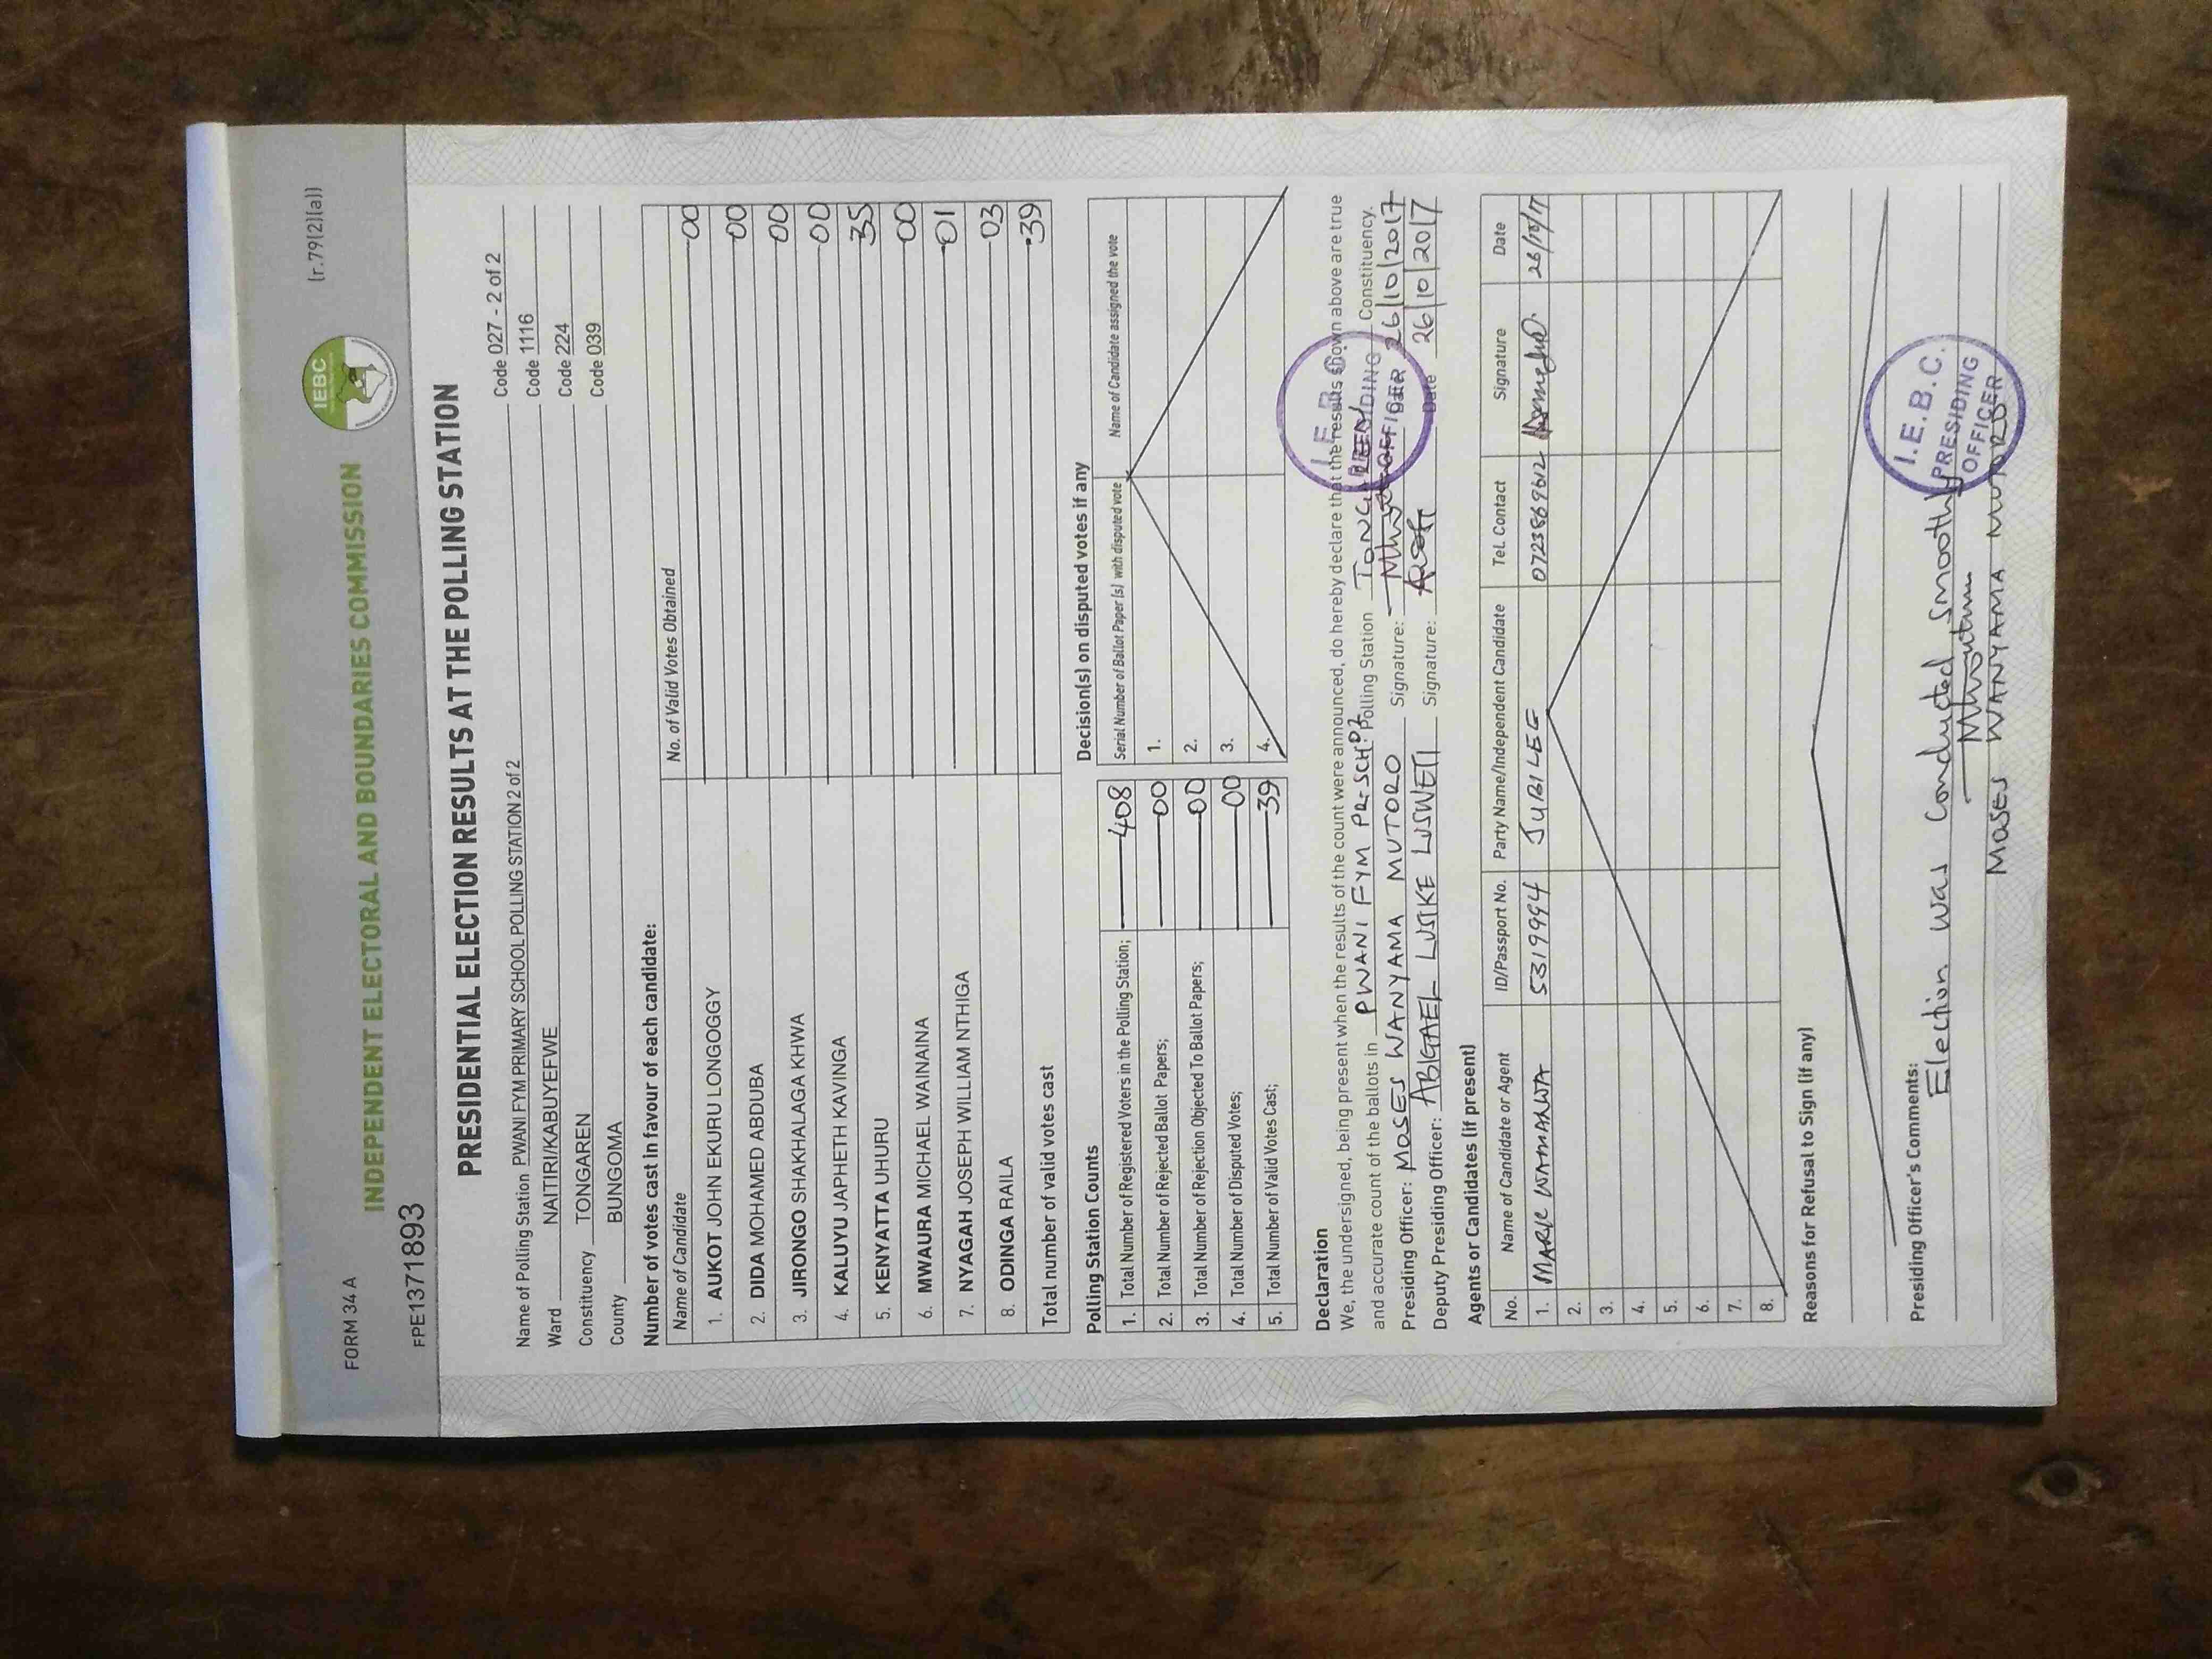 FORM 34 A
(r.79(2)(a))
IEBC
INDEPENDENT ELECTORAL AND BOUNDARIES COMMISSION
FPE1371893
PRESIDENTIAL ELECTION RESULTS AT THE POLLING STATION
Name of Polling Station PWANI FYM PRIMARY SCHOOL POLLING STATION 2 of 2 Code 027 - 2 of 2
Ward NAITIRI/KABUYEFWE Code 1116
Constituency TONGAREN Code 224
County BUNGOMA Code 039
Number of votes cast in favour of each candidate:
Name of Candidate No. of Valid Votes Obtained
1. AUKOT JOHN EKURU LONGOGGY 00
2. DIDA MOHAMED ABDUBA 00
3. JIRONGO SHAKHALAGA KHWA 00
4. KALUYU JAPHETH KAVINGA 00
5. KENYATTA UHURU 35
6. MWAURA MICHAEL WAINAINA 00
7. NYAGAH JOSEPH WILLIAM NTHIGA 01
8. ODINGA RAILA 03
Total number of valid votes cast 39
Polling Station Counts
1. Total Number of Registered Voters in the Polling Station; 408
2. Total Number of Rejected Ballot Papers; 00
3. Total Number of Rejection Objected To Ballot Papers; 00
4. Total Number of Disputed Votes; 00
5. Total Number of Valid Votes Cast; 39
Decision(s) on disputed votes if any
Serial Number of Ballot Paper (s) with disputed vote Name of Candidate assigned the vote
1.
2.
3.
4.
Declaration
We, the undersigned, being present when the results of the count were announced, do hereby declare that the results shown above are true
and accurate count of the ballots in PWANI FYM PR. SCH Polling Station TONGAREN Constituency.
Presiding Officer: MOSES WANYAMA MUTORO Signature: Date 26/10/2017
Deputy Presiding Officer: ABIGAEL LUSIKE LUSWETI Signature: Date 26/10/2017
I.E.B.C. PRESIDING OFFICER
Agents or Candidates (if present)
No. Name of Candidate or Agent ID/Passport No. Party Name/Independent Candidate Tel. Contact Signature Date
1. MARK WAMALWA 5319994 JUBILEE 0723869612 26/10/17
2.
3.
4.
5.
6.
7.
8.
Reasons for Refusal to Sign (if any)
Presiding Officer's Comments:
Election was conducted smoothly
MOSES WANYAMA MUTORO
I.E.B.C.
PRESIDING
OFFICER